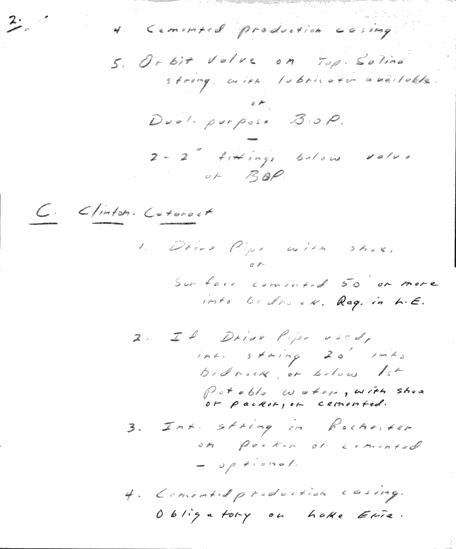 2.
4. Cemented production casing
5. Orbit valve on Top-Salina
string, with lubricator available.
or
Dual-purpose B.O.P.
2-2" fittings below valve
or BOP.
C. Clinton-Cataract
1. Drive Pipe with shoe,
or
Surface cemented 50' or more
into bedrock. Req. in L.E.
2. If Drive Pipe used,
int. string 20' into
bedrock, or below 1st
Potable water, with shoe
or packer, or cemented.
3. Int. string in Rochester
on packer or cemented
- optional.
4. Cemented production casing.
Obligatory on Lake Erie.